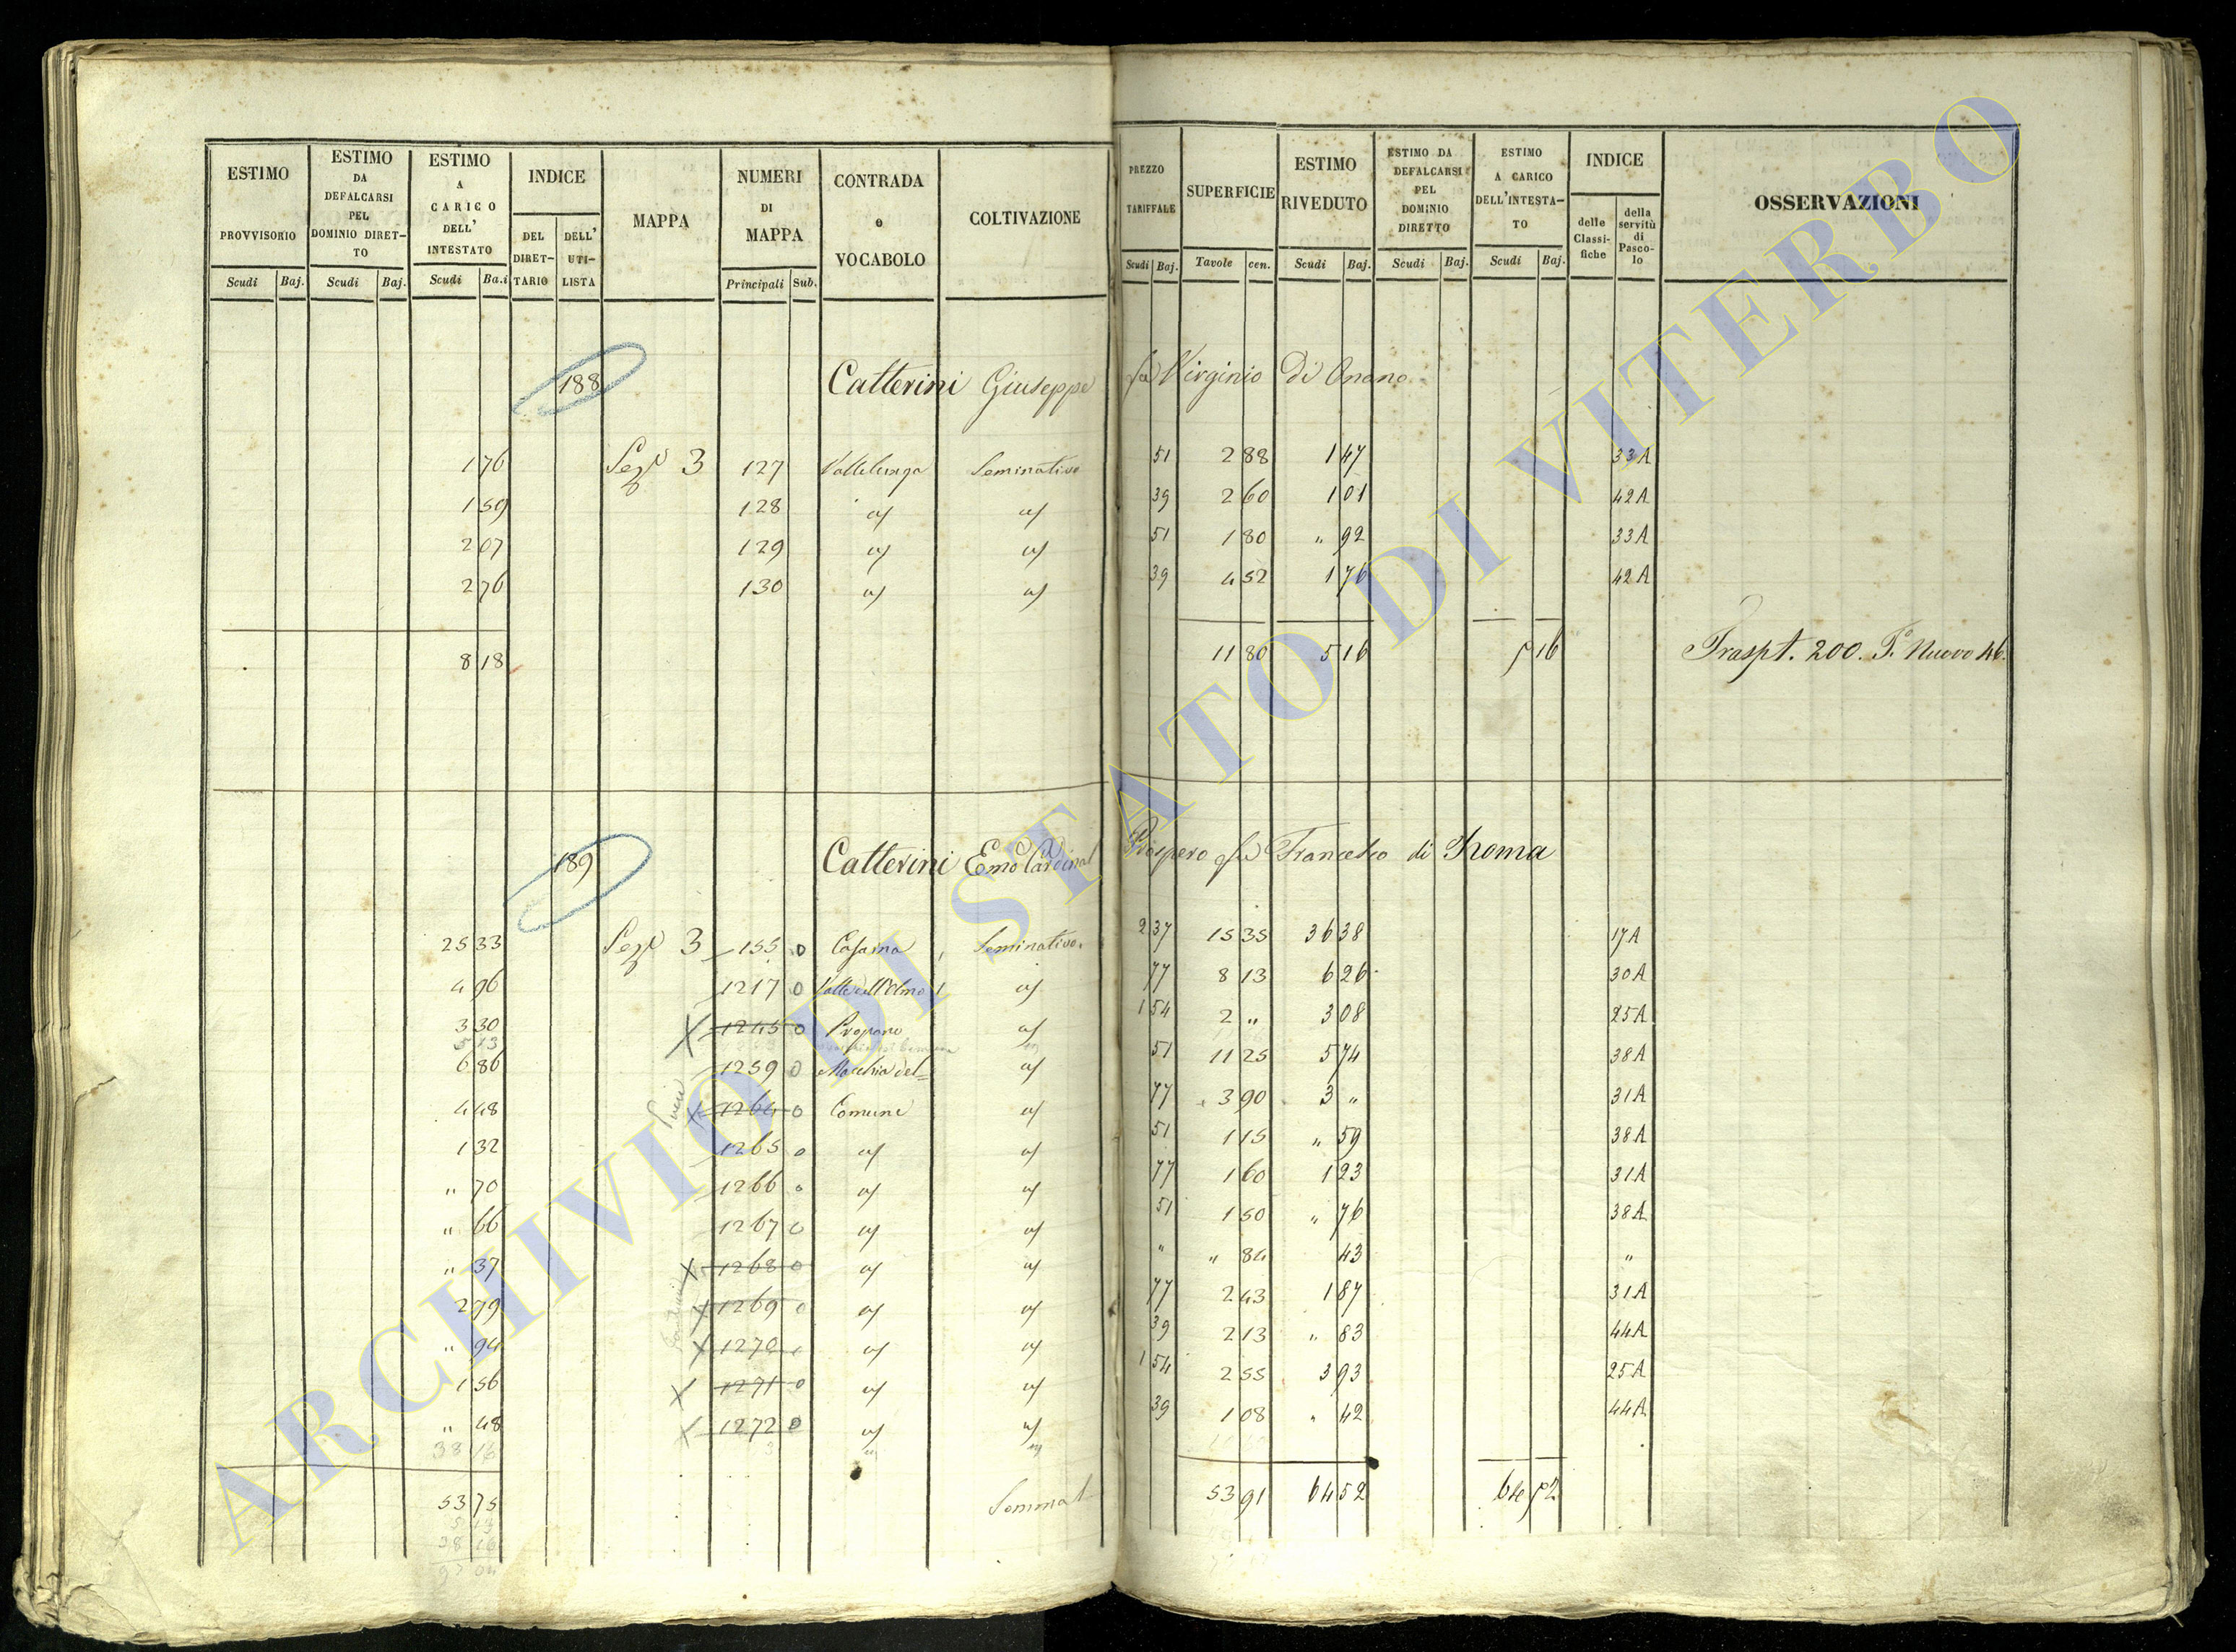 ESTIMO PROVVISORIO Scudi Baj.
ESTIMO DA DEFALCARSI PEL DOMINIO DIRETTO Scudi Baj.
ESTIMO A CARICO DELL' INTESTATO Scudi Ba.i
INDICE DEL DIRETTARIO DELL' UTILISTA
MAPPA
NUMERI DI MAPPA Principali Sub.
CONTRADA o VOCABOLO
COLTIVAZIONE
PREZZO TARIFFALE Scudi Baj.
SUPERFICIE Tavole cen.
ESTIMO RIVEDUTO Scudi Baj.
ESTIMO DA DEFALCARSI PEL DOMINIO DIRETTO Scudi Baj.
ESTIMO A CARICO DELL'INTESTATO Scudi Baj.
INDICE delle Classifiche della servitù di Pascolo
OSSERVAZIONI
188 Catterini Giuseppe fu Virginio Di Onano
1 76 Sez. 3 127 Vallelunga Seminativo 51 2 88 1 47 33A
1 59 128 51 39 2 60 1 01 42A
2 07 129 51 1 80 " 92 33A
2 76 130 39 4 52 1 76 42A
8 18 11 80 5 16 5 16 Traspt. 200. F. Nuovo 46.
189 Catterini Emo Cardinal Prospero fu Francesco di Roma
25 33 Sez. 3 155 0 Casaina Seminativo 2 37 15 35 36 38 17A
4 96 1217 0 Valle dell'Olmo 77 8 13 6 26 30A
3 30 X 1245 0 Propano 1 54 2 " 3 08 25A
5 13
6 86 1259 0 Macchia del= 51 11 25 5 74 38A
4 48 X 1264 0 Comune 77 3 90 3 " 31A
1 32 1265 0 51 1 15 " 59 38A
" 70 1266 0 77 1 60 1 23 31A
" 66 1267 0 51 1 50 " 76 38A
" 37 X 1268 0 " " 84 43 "
2 79 X 1269 0 77 2 43 1 87 31A
" 94 X 1270 39 2 13 " 83 44A
1 56 X 1271 0 1 54 2 55 3 93 25A
" 48 X 1272 0 39 1 08 " 42 44A
38 16
53 75 Sommat 53 91 64 52 64 52
5 13
38 16
97 04
ARCHIVIO DI STATO DI VITERBO